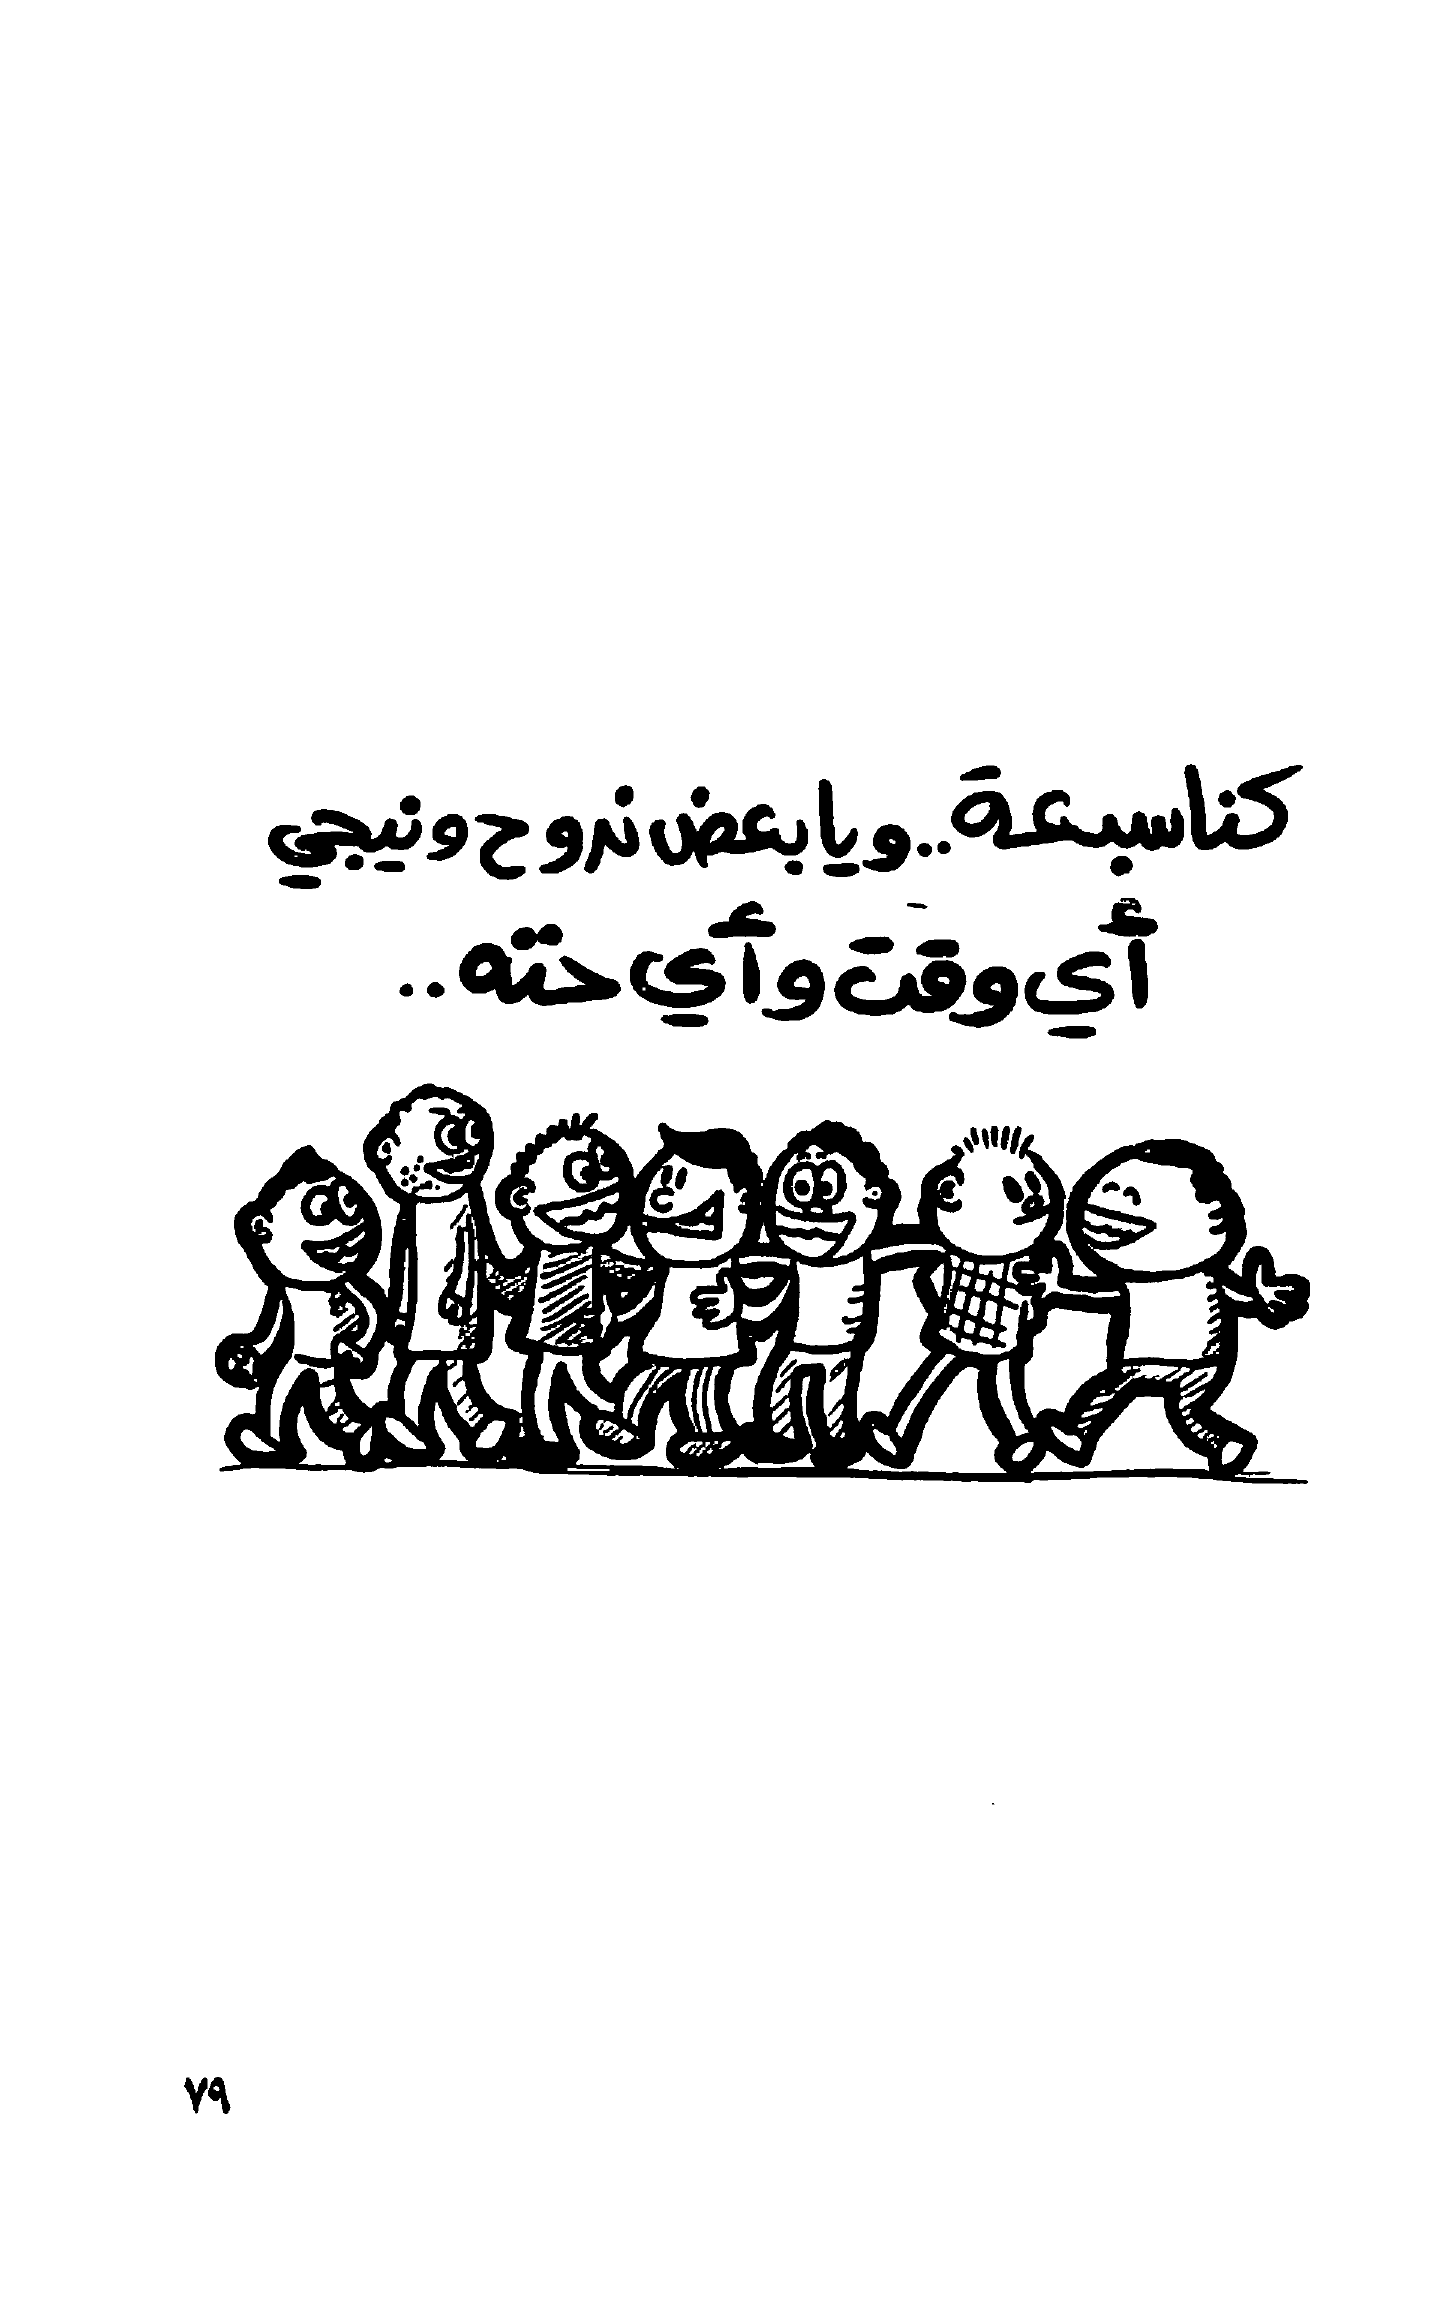 كنا سبعة.. ويا بعض نروح ونيجي
أي وقت وأي حته..
٧٩